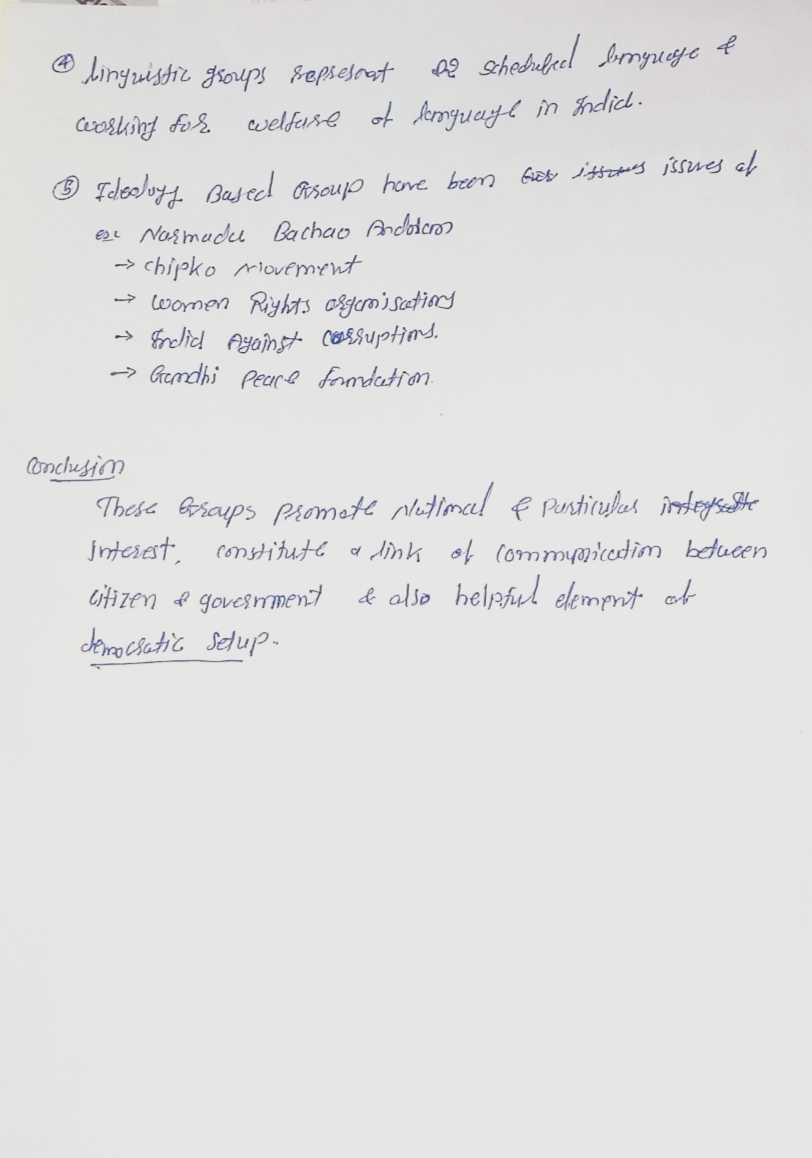 ④ linguistic groups represent 22 scheduled language &
working for welfare of language in India.
⑤ Ideology Based Group have been issues issues of
ex: Narmada Bachao Andolan
→ Chipko Movement
→ Women Rights organisations
→ India Against Corruptions.
→ Gandhi Peace foundation.
Conclusion
These Groups promote National & Particular integrate
Interest, constitute a link of communication between
citizen & government & also helpful element of
democratic setup.